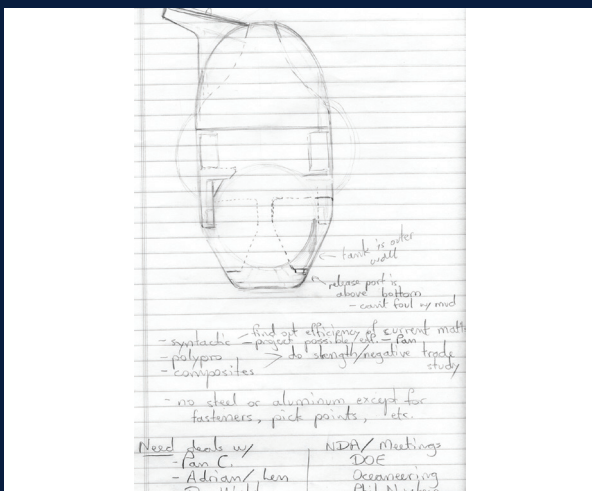 tank is outer
wall
release port is
above bottom
- can't foul w/ mud
- syntactic - find out efficiency of current matl
- project possible eff. - Pan
- polypro > do stength/negative trade
- composites study
- no steel or aluminum except for
fasteners, pick points, etc.
Need deals w/
- Pan C.
- Adrian/Len
NDA/Meetings
DOE
Oceaneering